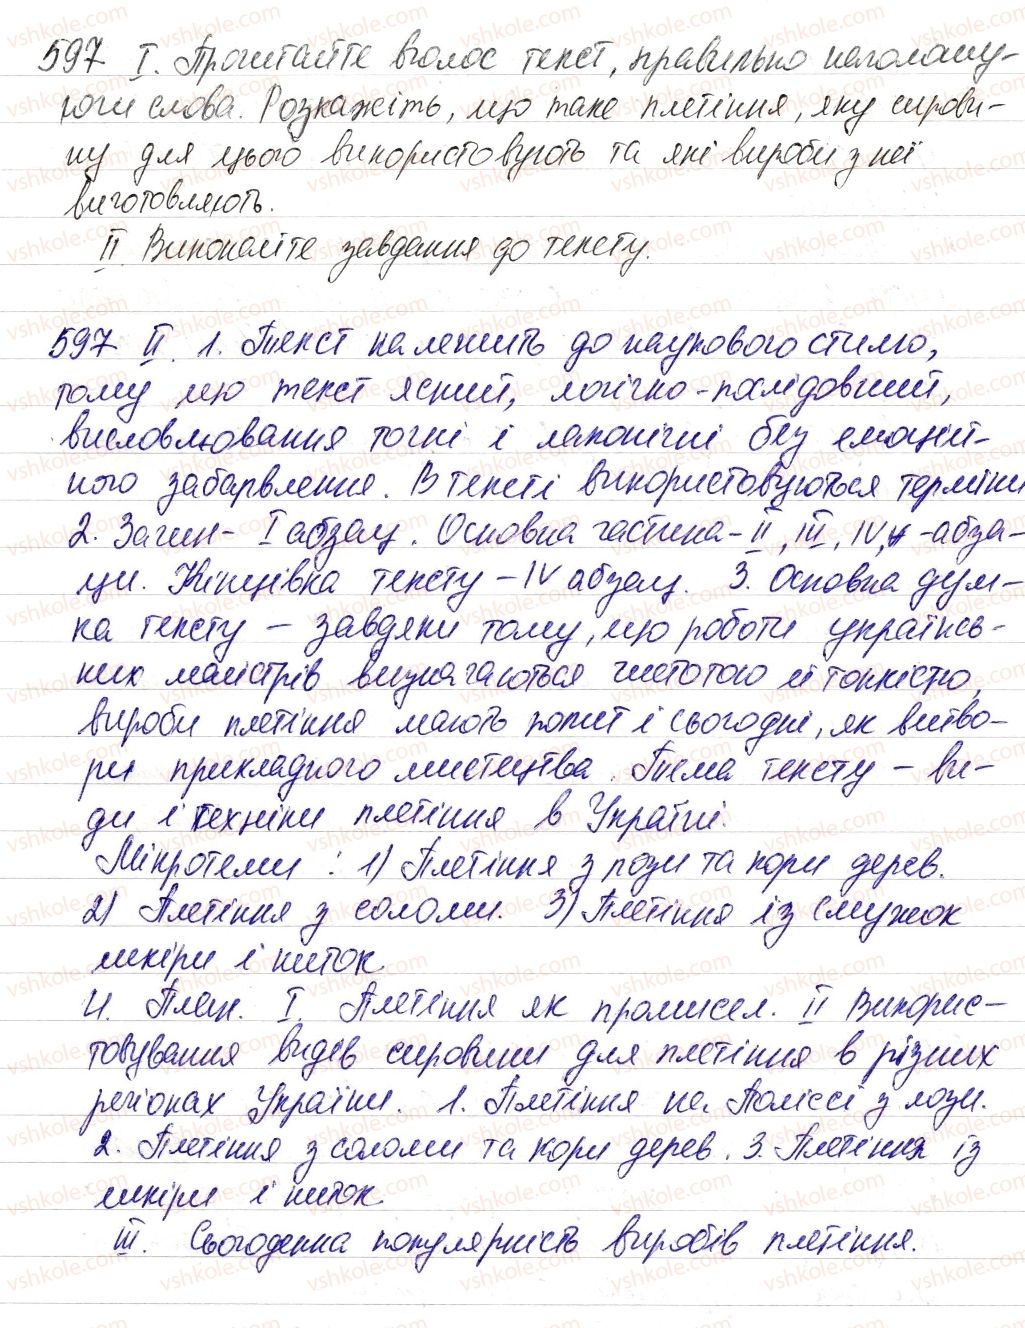 597 І. Прочитайте вголос текст, правильно наголошу-
ючи слова. Розкажіть, що таке плетіння, яку сирови-
ну для цього використовують та які вироби з неї
виготовляють.
ІІ. Виконайте завдання до тексту.
597 ІІ. 1. Текст належить до наукового стилю,
тому що текст ясний, логічно-послідовний,
висловлювання точні і лаконічні без емоцій-
ного забарвлення. В тексті використовуються терміни
2. Зачин - І абзац. Основна частина - ІІ, ІІІ, IV - абза-
ци. Кінцівка тексту - IV абзац. 3. Основна дум-
ка тексту - завдяки тому, що роботи українсь-
ких майстрів визначаються чистотою й тонкістю,
вироби плетіння мають попит і сьогодні, як витво-
ри прикладного мистецтва. Тема тексту - ви-
ди і техніки плетіння в Україні.
Мікротеми: 1) Плетіння з лози та кори дерев.
2) Плетіння з соломи. 3) Плетіння із смужок
шкіри і ниток.
4. План. І. Плетіння як промисел. ІІ Викорис-
товування видів сировини для плетіння в різних
регіонах України. 1. Плетіння на Поліссі з лози.
2. Плетіння з соломи та кори дерев. 3. Плетіння із
шкіри і ниток.
ІІІ. Сьогоденна популярність виробів плетіння.